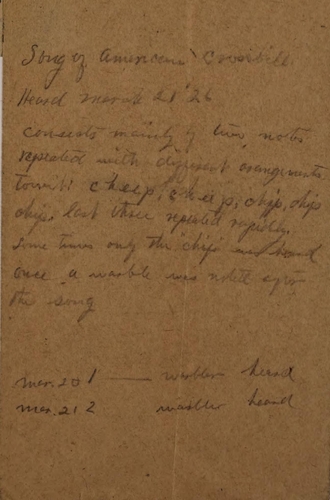 Song of American Crossbill
Heard March 21 '26
consists mainly of two notes
repeated with different arrangements
towit: cheep, cheep, chip, chip
chip, last three repeated rapidly.
Some times only the chip was heard
once a warble was noted after
the song
Mar. 20 1 — warbler heard
Mar. 21 2 warbler heard